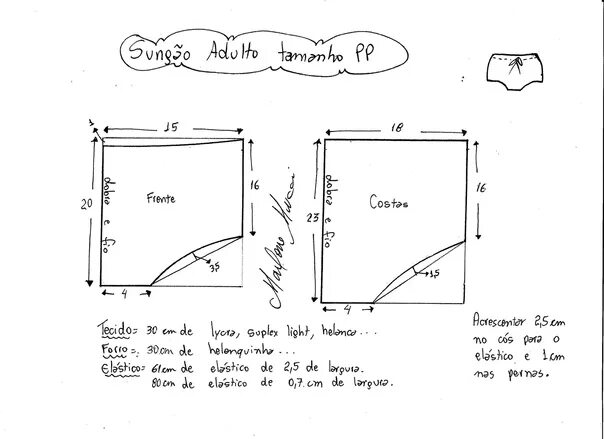 Sungão Adulto tamanho PP
1
15
20
dobra e fio
Frente
16
3,5
4
Marlene Mukai
18
23
dobra e fio
Costas
16
1,5
4
Tecido= 30 cm de lycra, suplex light, helanca...
Forro=: 30cm de helanquinha...
Elástico= 61cm de elástico de 2,5 de largura.
80cm de elástico de 0,7 cm de largura.
Acrescentar 2,5cm
no cós para o
elástico e 1cm
nas pernas.